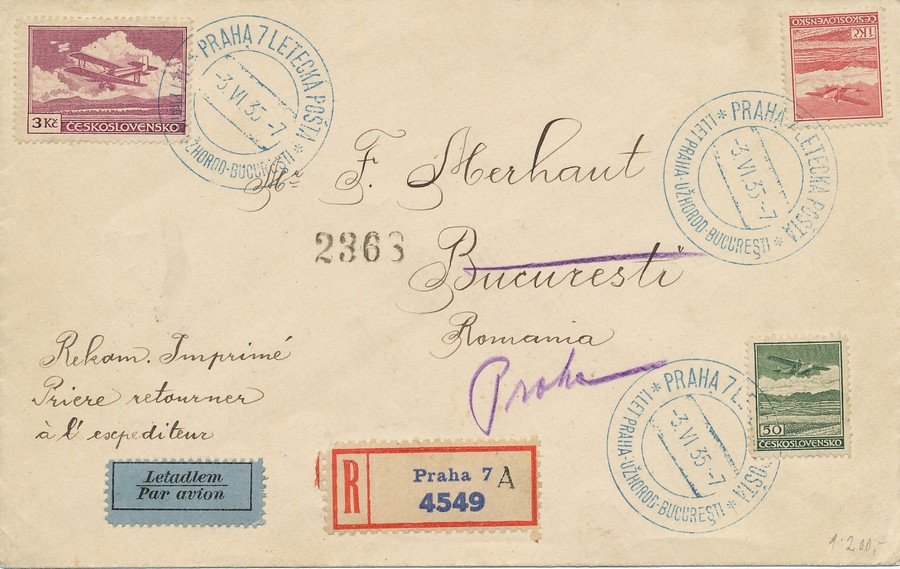 3 Kč
ČESKOSLOVENSKO
PRAHA 7 LETECKÁ POŠTA
-3.VI.35-7
UŽHOROD-BUCUREŞTI *
ČESKOSLOVENSKO
1 Kč
* PRAHA 7 LETECKÁ POŠTA *
-3.VI.35-7
I. LET PRAHA-UŽHOROD-BUCUREŞTI
Mr. F. Merhaut
2363
Bucuresti
Romania
Praha
Rekom. Imprimé
Priere retourner
à l'expediteur
Letadlem
Par avion
R
Praha 7 A
4549
50
ČESKOSLOVENSKO
* PRAHA 7 L
POŠTA *
-3.VI.35-7
I. LET PRAHA-UŽHOROD-BUCUREŞTI
1:200,-